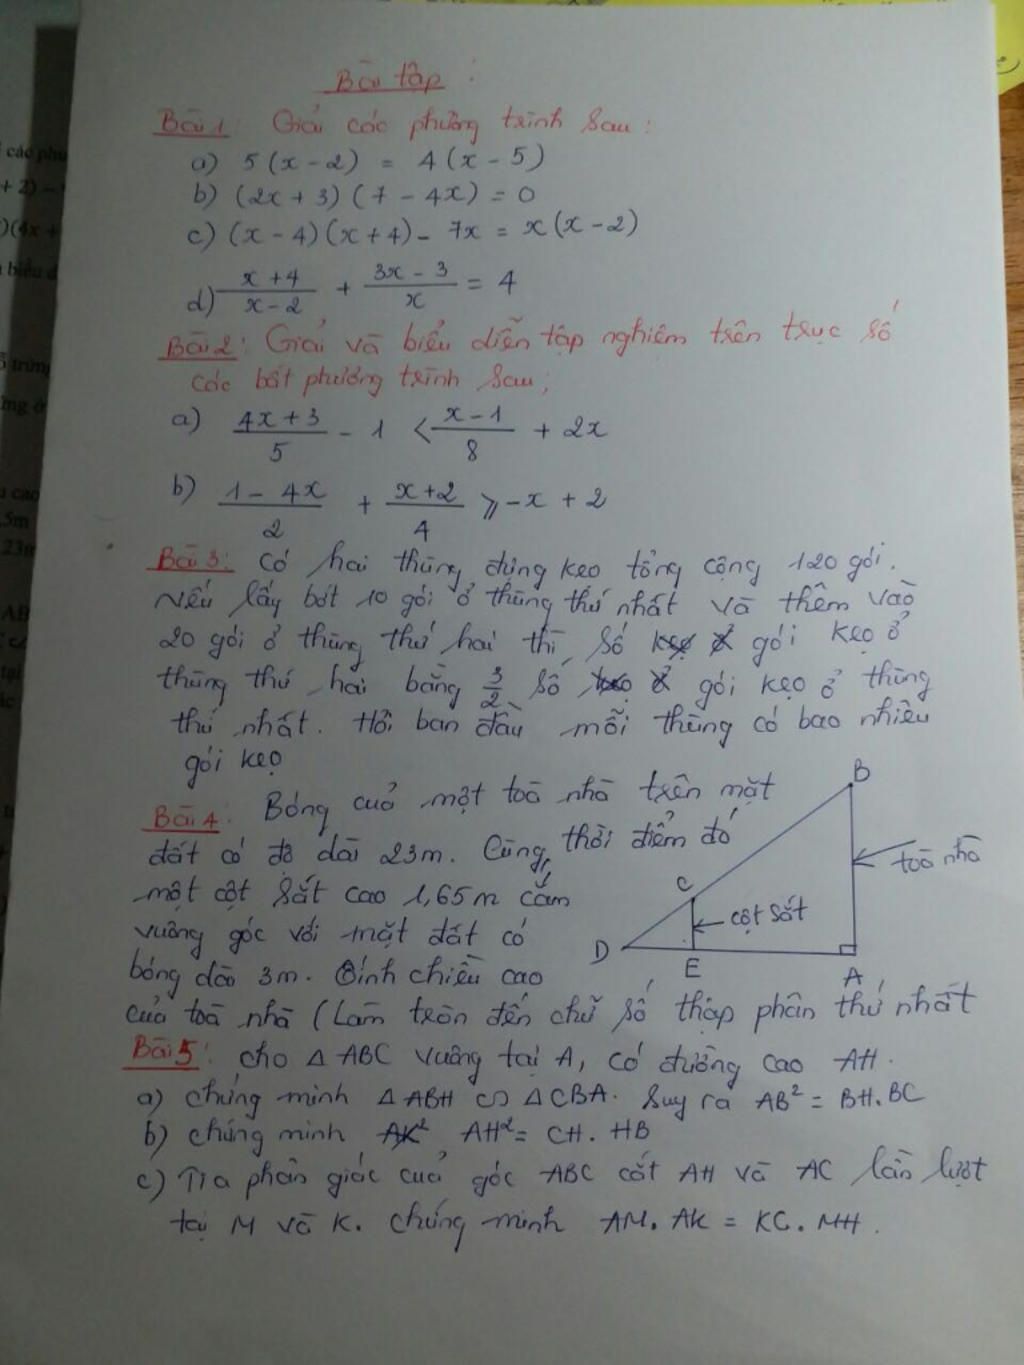 Bài tập :
Bài 1: Giải các phương trình sau :
a) 5(x - 2) = 4(x - 5)
b) (2x + 3)(7 - 4x) = 0
c) (x - 4)(x + 4) - 7x = x(x - 2)
d) \frac{x + 4}{x - 2} + \frac{3x - 3}{x} = 4
Bài 2: Giải và biểu diễn tập nghiệm trên trục số
các bất phương trình sau;
a) \frac{4x + 3}{5} - 1 < \frac{x - 1}{8} + 2x
b) \frac{1 - 4x}{2} + \frac{x + 2}{4} ⩾ -x + 2
Bài 3: Có hai thùng đựng kẹo tổng cộng 120 gói.
Nếu lấy bớt 10 gói ở thùng thứ nhất và thêm vào
20 gói ở thùng thứ hai thì số gói kẹo ở
thùng thứ hai bằng \frac{3}{2} số gói kẹo ở thùng
thứ nhất. Hỏi ban đầu mỗi thùng có bao nhiêu
gói kẹo
Bài 4: Bóng cuả một toà nhà trên mặt
đất có độ dài 23m. Cùng thời điểm đó
một cột sắt cao 1,65m cắm
vuông góc với mặt đất có
bóng dài 3m. Tính chiều cao
của toà nhà (Làm tròn đến chữ số thập phân thứ nhất
B
toà nhà
C
cột sắt
D
E
A
Bài 5: cho △ ABC vuông tại A, có đường cao AH.
a) chứng minh △ ABH ∽ △ CBA. Suy ra AB² = BH.BC
b) chứng minh AH² = CH. HB
c) Tia phân giác cuả góc ABC cắt AH và AC lần lượt
tại M và K. Chứng minh AM. AK = KC. MH.